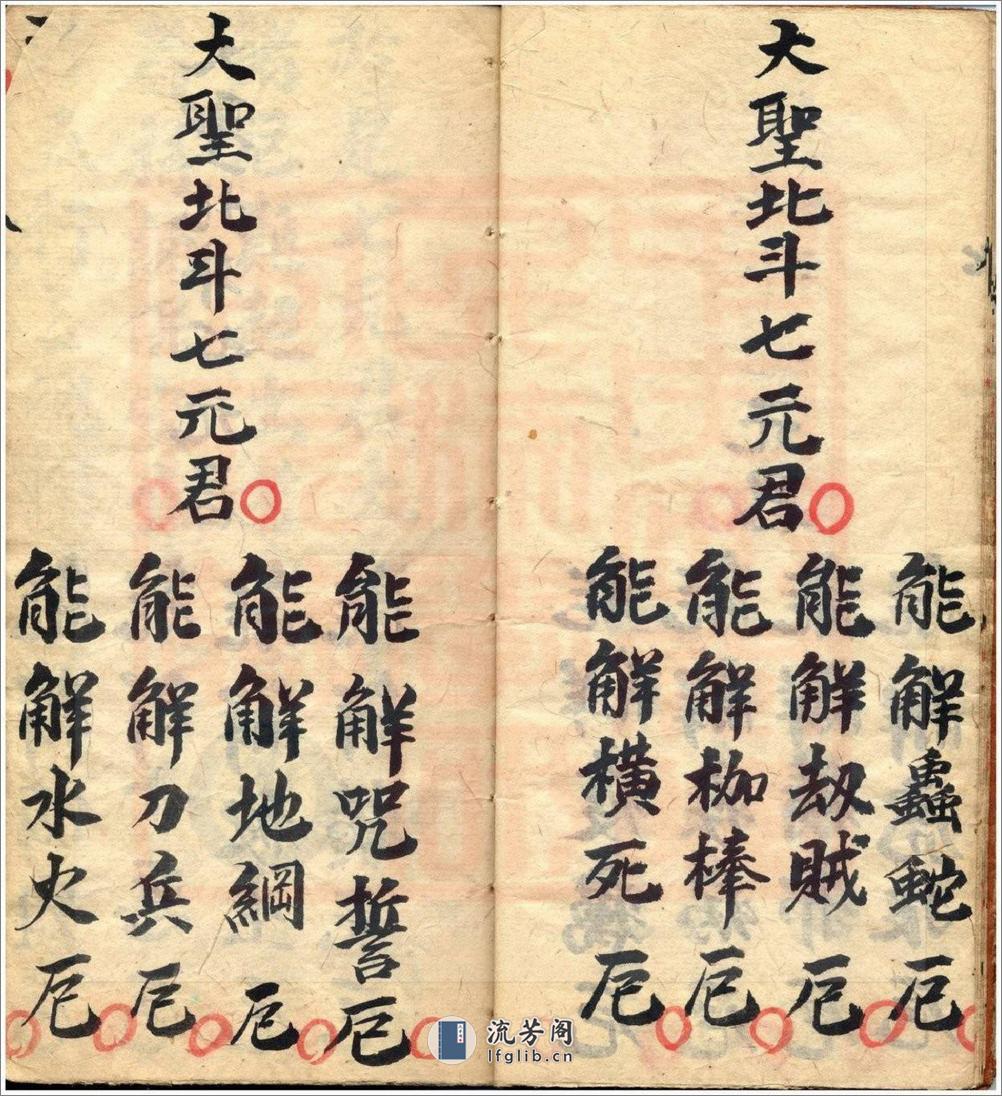 大聖北斗七元君
能解蟲蛇厄
能解刼賊厄
能解枷棒厄
能解橫死厄
大聖北斗七元君
能解呪誓厄
能解地綱厄
能解刀兵厄
能解水火厄
流芳阁
lfglib.cn